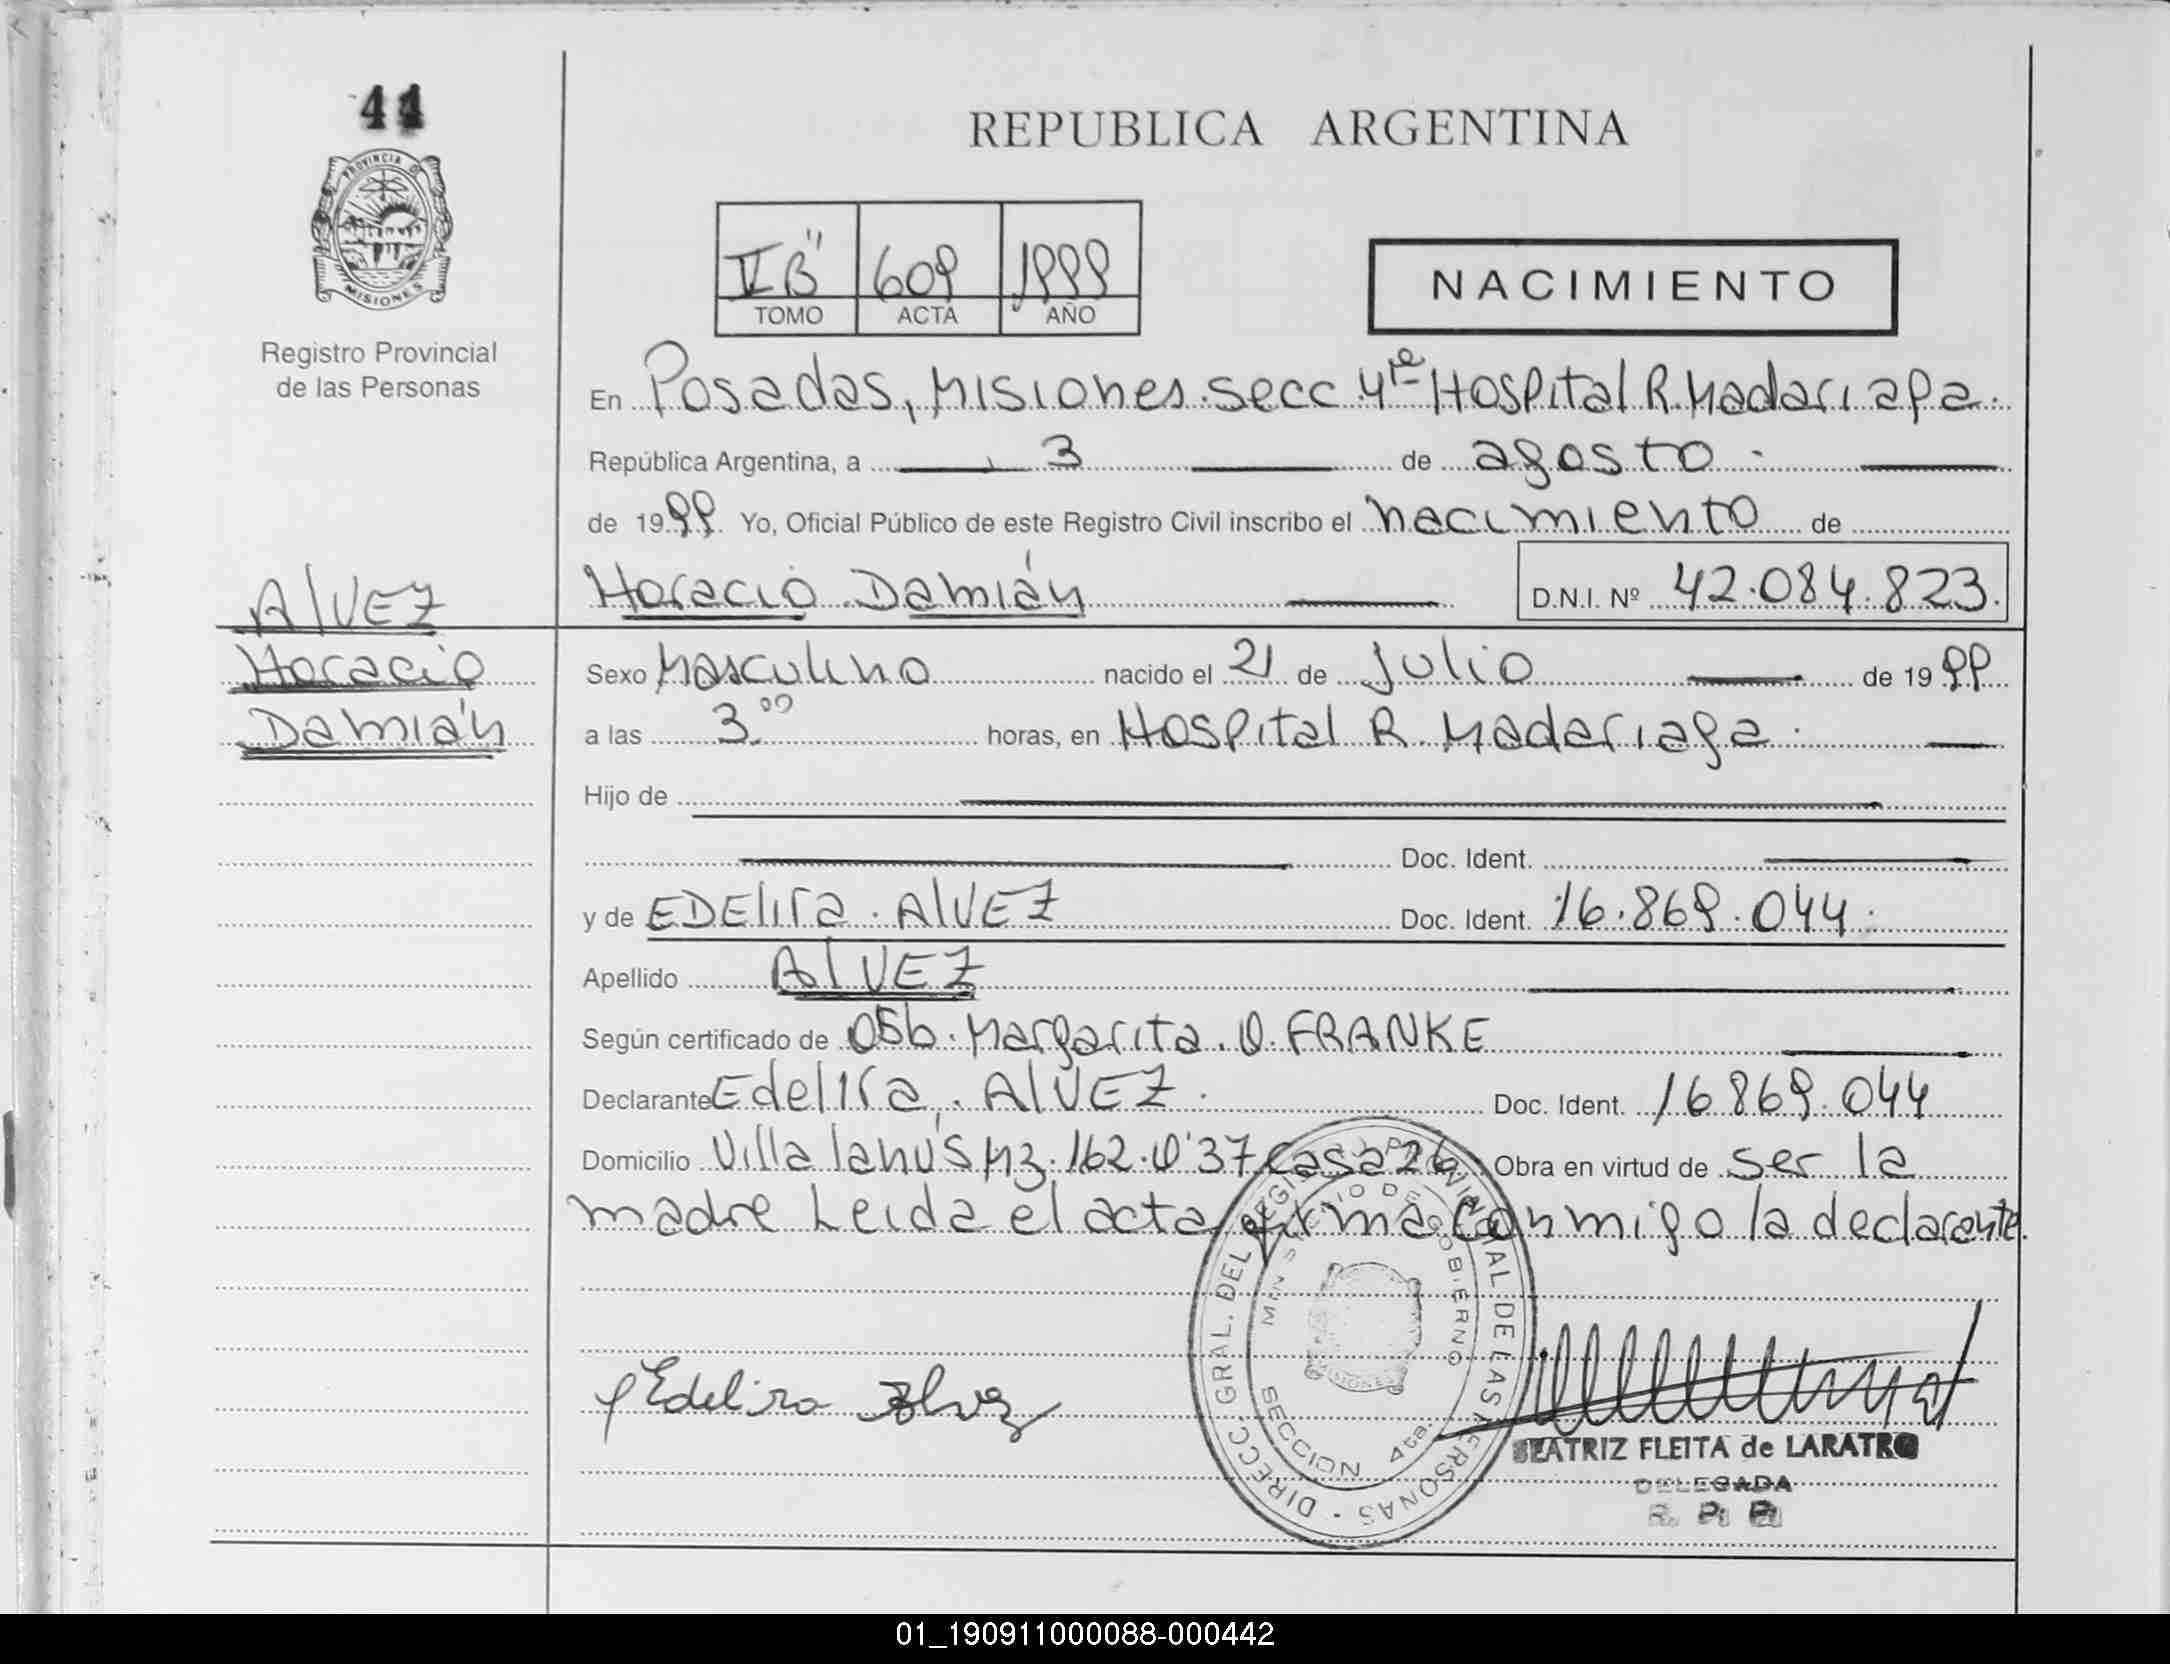 44
PROVINCIA D
MISIONES
Registro Provincial
de las Personas
REPUBLICA ARGENTINA
B" 609 1999
TOMO ACTA AÑO
NACIMIENTO
En Posadas, Misiones. Secc 4ta Hospital R. Madariaga.
República Argentina, a 3 de agosto
de 1999. Yo, Oficial Público de este Registro Civil inscribo el nacimiento de
Horacio Damián D.N.I. Nº 42.084.823.
ALVEZ
Horacio
Damián
Sexo Masculino nacido el 21 de Julio de 1999
a las 3.00 horas, en Hospital R. Madariaga.
Hijo de
Doc. Ident.
y de EDElira. AlVEZ Doc. Ident. 16.869.044.
Apellido AlVEZ
Según certificado de Obs. Margarita. O. FRANKE
Declarante Edelira. AlVEZ. Doc. Ident. 16869.044
Domicilio Villa lanús Mz. 162. 37 Casa 26 Obra en virtud de ser la
madre Leida el acta firma conmigo la declarante.
Edelira Alvez
DIRECC. GRAL. DEL REGIST. PROVINCIAL DE LAS PERSONAS
MINISTERIO DE GOBIERNO
MISIONES
SECCION 4ta.
BEATRIZ FLEITA de LARATRO
DELEGADA
R. P. P.
01_190911000088-000442